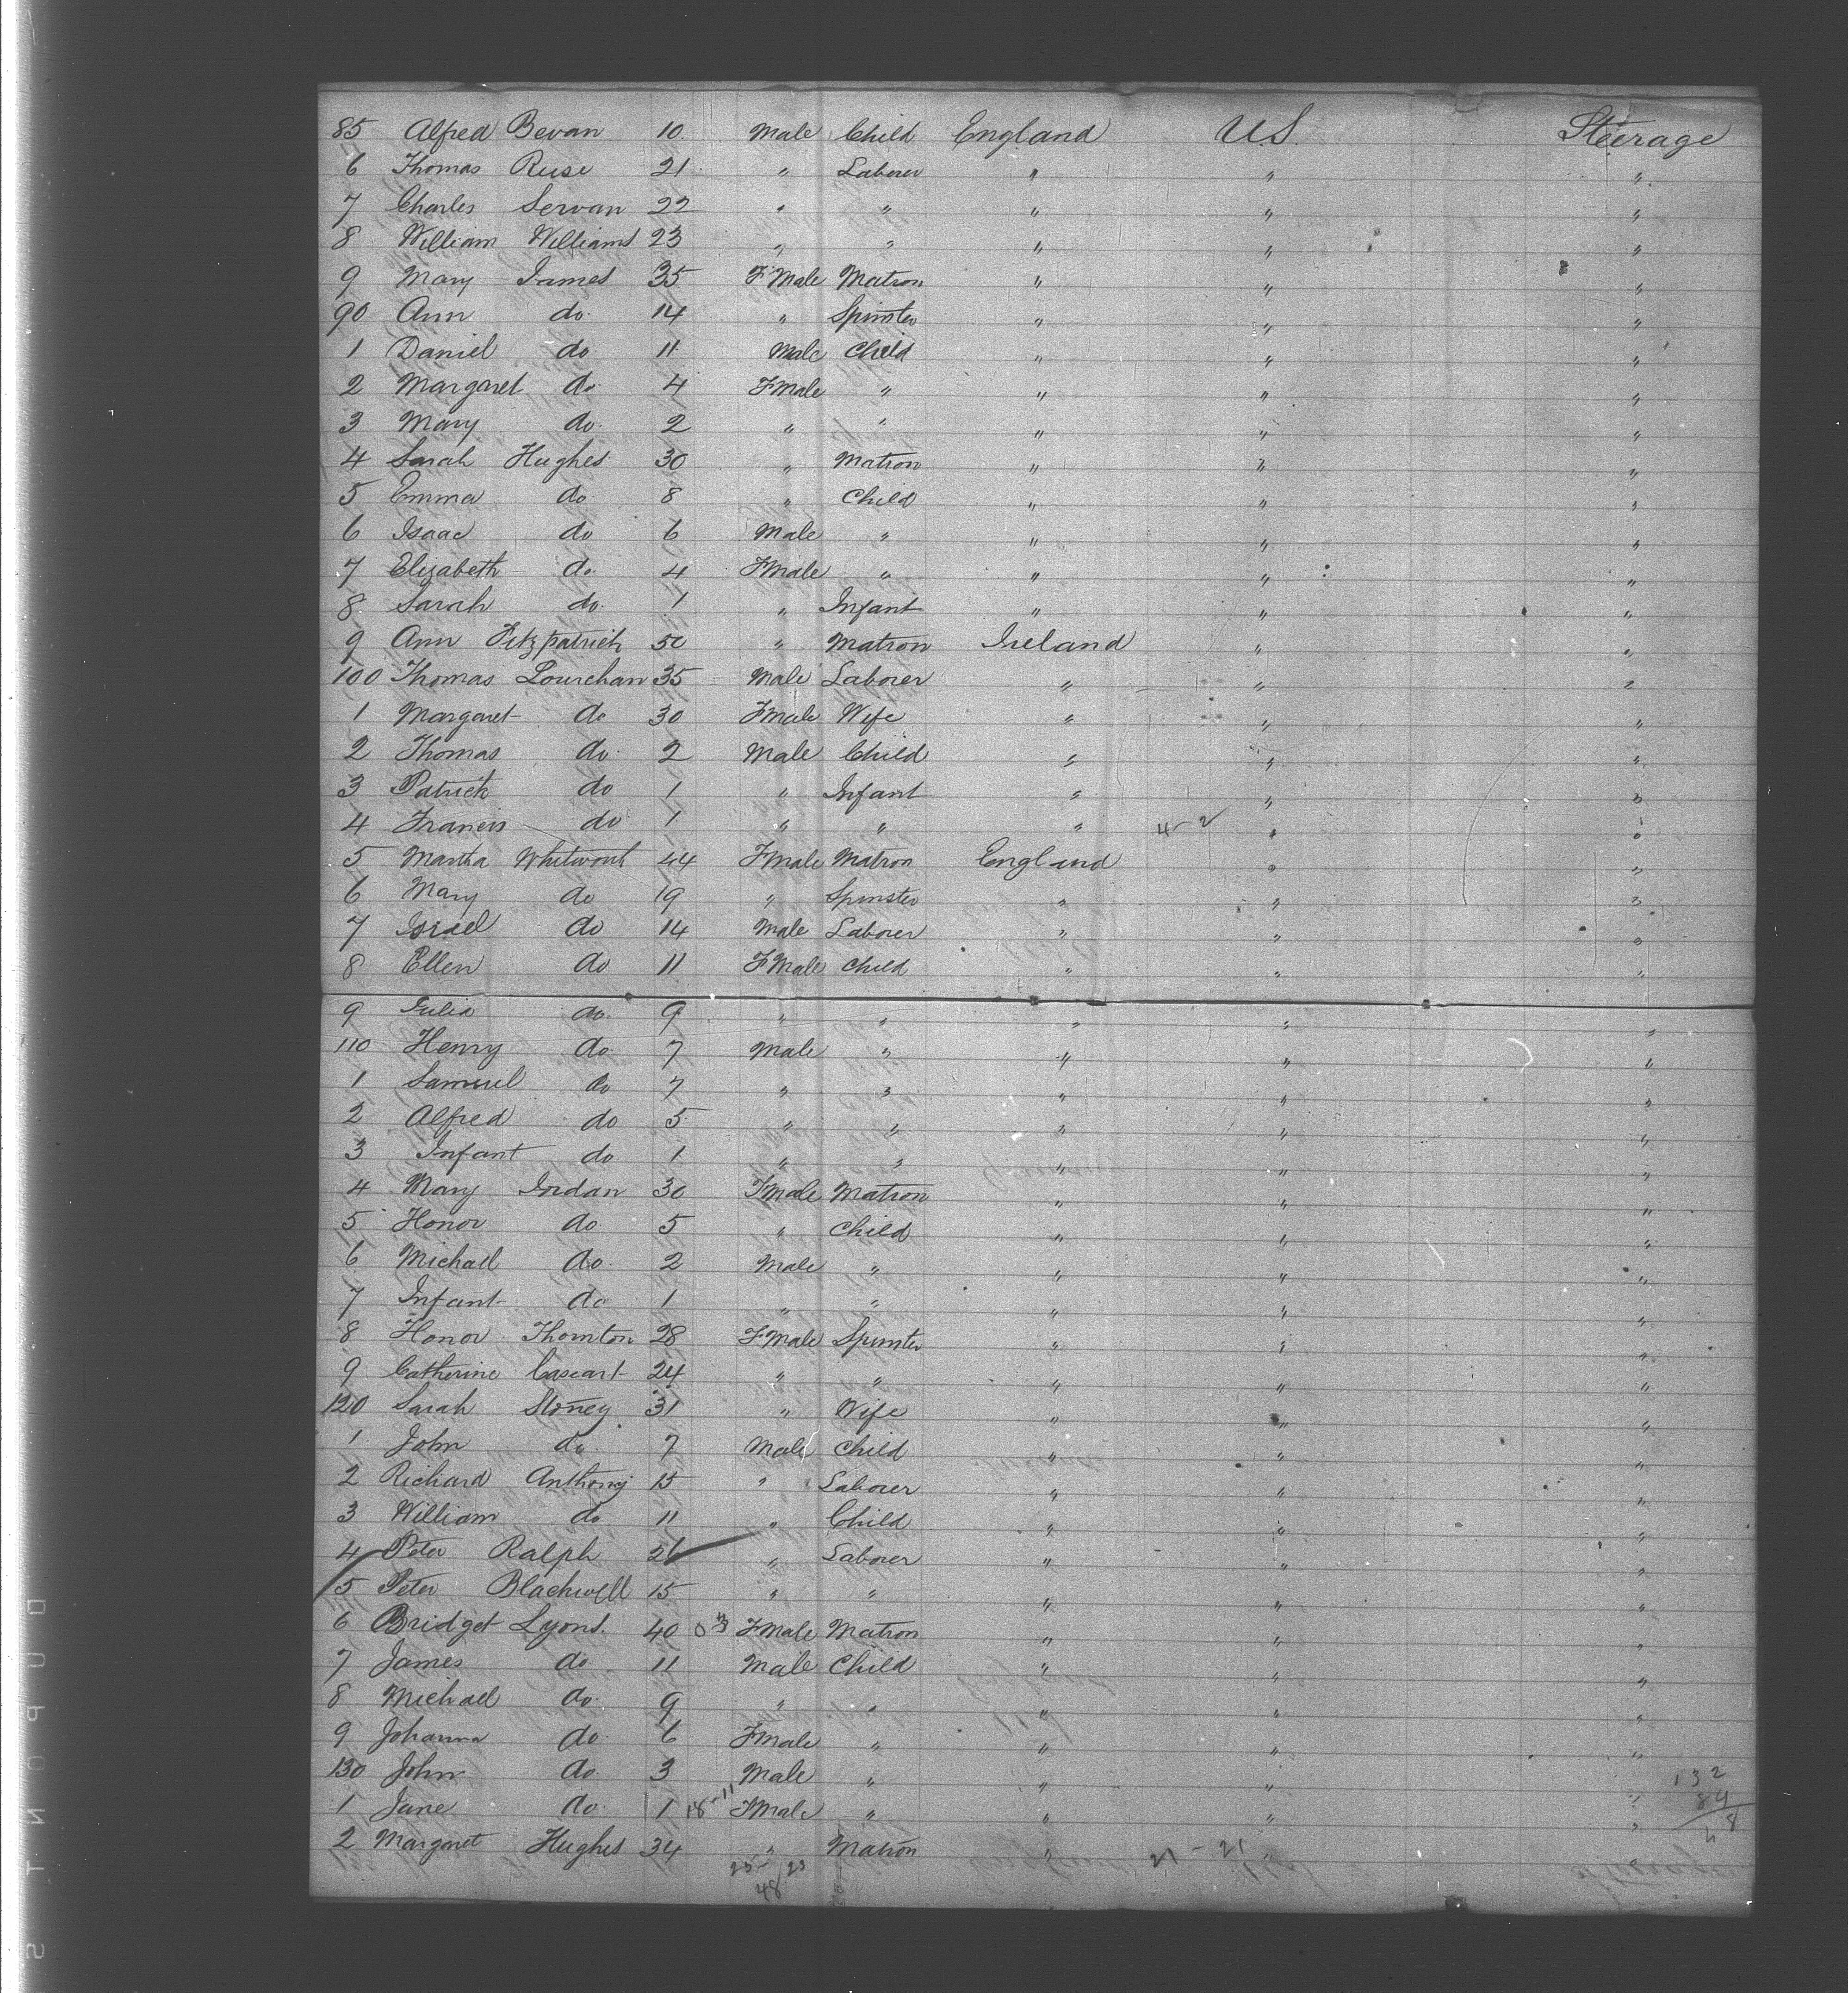 85 Alfred Bevan 10 Male Child England U.S. Steerage
6 Thomas Ruse 21 " Laborer " " "
7 Charles Servan 22 " " " " "
8 William Williams 23 " " " " "
9 Mary James 35 FMale Matron " " "
90 Ann do. 14 " Spinster " " "
1 Daniel do 11 Male Child " " "
2 Margaret do. 4 FMale " " " "
3 Mary do. 2 " " " " "
4 Sarah Hughes 30 " Matron " " "
5 Emma do 8 " Child " " "
6 Isaac do 6 Male " " " "
7 Elizabeth do. 4 FMale " " " "
8 Sarah do. 1 " Infant " " "
9 Ann Fitzpatrick 50 " Matron Ireland " "
100 Thomas Lourchan 35 Male Laborer " " "
1 Margaret do 30 FMale Wife " " "
2 Thomas do. 2 Male Child " " "
3 Patrick do 1 " Infant " " "
4 Francis do 1 " " " 4-2 " "
5 Martha Whitworth 44 FMale Matron England " "
6 Mary do 19 " Spinster " " "
7 Israel do 14 Male Laborer " " "
8 Ellen do 11 FMale Child " " "
9 Julia do. 9 " " " " "
110 Henry do 7 Male " " " "
1 Samuel do 7 " " " " "
2 Alfred do 5 " " " " "
3 Infant do 1 " " " " "
4 Mary Jordan 30 FMale Matron " " "
5 Honor do 5 " Child " " "
6 Michael do. 2 Male " " " "
7 Infant do 1 " " " " "
8 Honor Thornton 28 FMale Spinster " " "
9 Catherine 24 " " " " "
120 Sarah Stoney 31 " Wife " " "
1 John do. 7 Male Child " " "
2 Richard Anthony 15 " Laborer " " "
3 William do 11 " Child " " "
4 Peter Ralph 21 " Laborer " " "
5 Peter Blackwell 15 " " " " "
6 Bridget Lyons. 40 FMale Matron " " "
7 James do 11 Male Child " " "
8 Michael do. 9 " " " " "
9 Johanna do. 6 FMale " " " "
130 John do. 3 Male " " " " 132
1 Jane do. 1 18-11 FMale " " " " 84
2 Margaret Hughes 34 " Matron " 21-21 " "
25-23
48